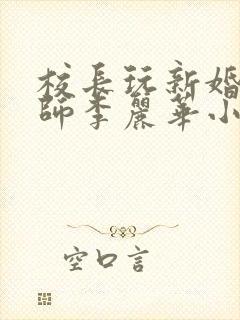 校長玩新婚
師李麗華小
空口言